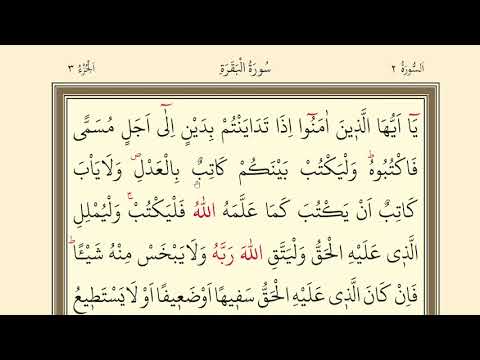 اَلسُّورَةُ ٢ سُورَةُ الْبَقَرَةِ اَلْجُزْءُ ٣
يَٓا اَيُّهَا الَّذ۪ينَ اٰمَنُٓوا اِذَا تَدَايَنْتُمْ بِدَيْنٍ اِلٰٓى اَجَلٍ مُسَمًّى
فَاكْتُبُوهُۜ وَلْيَكْتُبْ بَيْنَكُمْ كَاتِبٌ بِالْعَدْلِۖ وَلَا يَأْبَ
كَاتِبٌ اَنْ يَكْتُبَ كَمَا عَلَّمَهُ اللّٰهُ فَلْيَكْتُبْۚ وَلْيُمْلِلِ
الَّذ۪ي عَلَيْهِ الْحَقُّ وَلْيَتَّقِ اللّٰهَ رَبَّهُ وَلَا يَبْخَسْ مِنْهُ شَيْـًٔاۜ
فَاِنْ كَانَ الَّذ۪ي عَلَيْهِ الْحَقُّ سَف۪يهًا اَوْ ضَع۪يفًا اَوْ لَا يَسْتَط۪يعُ